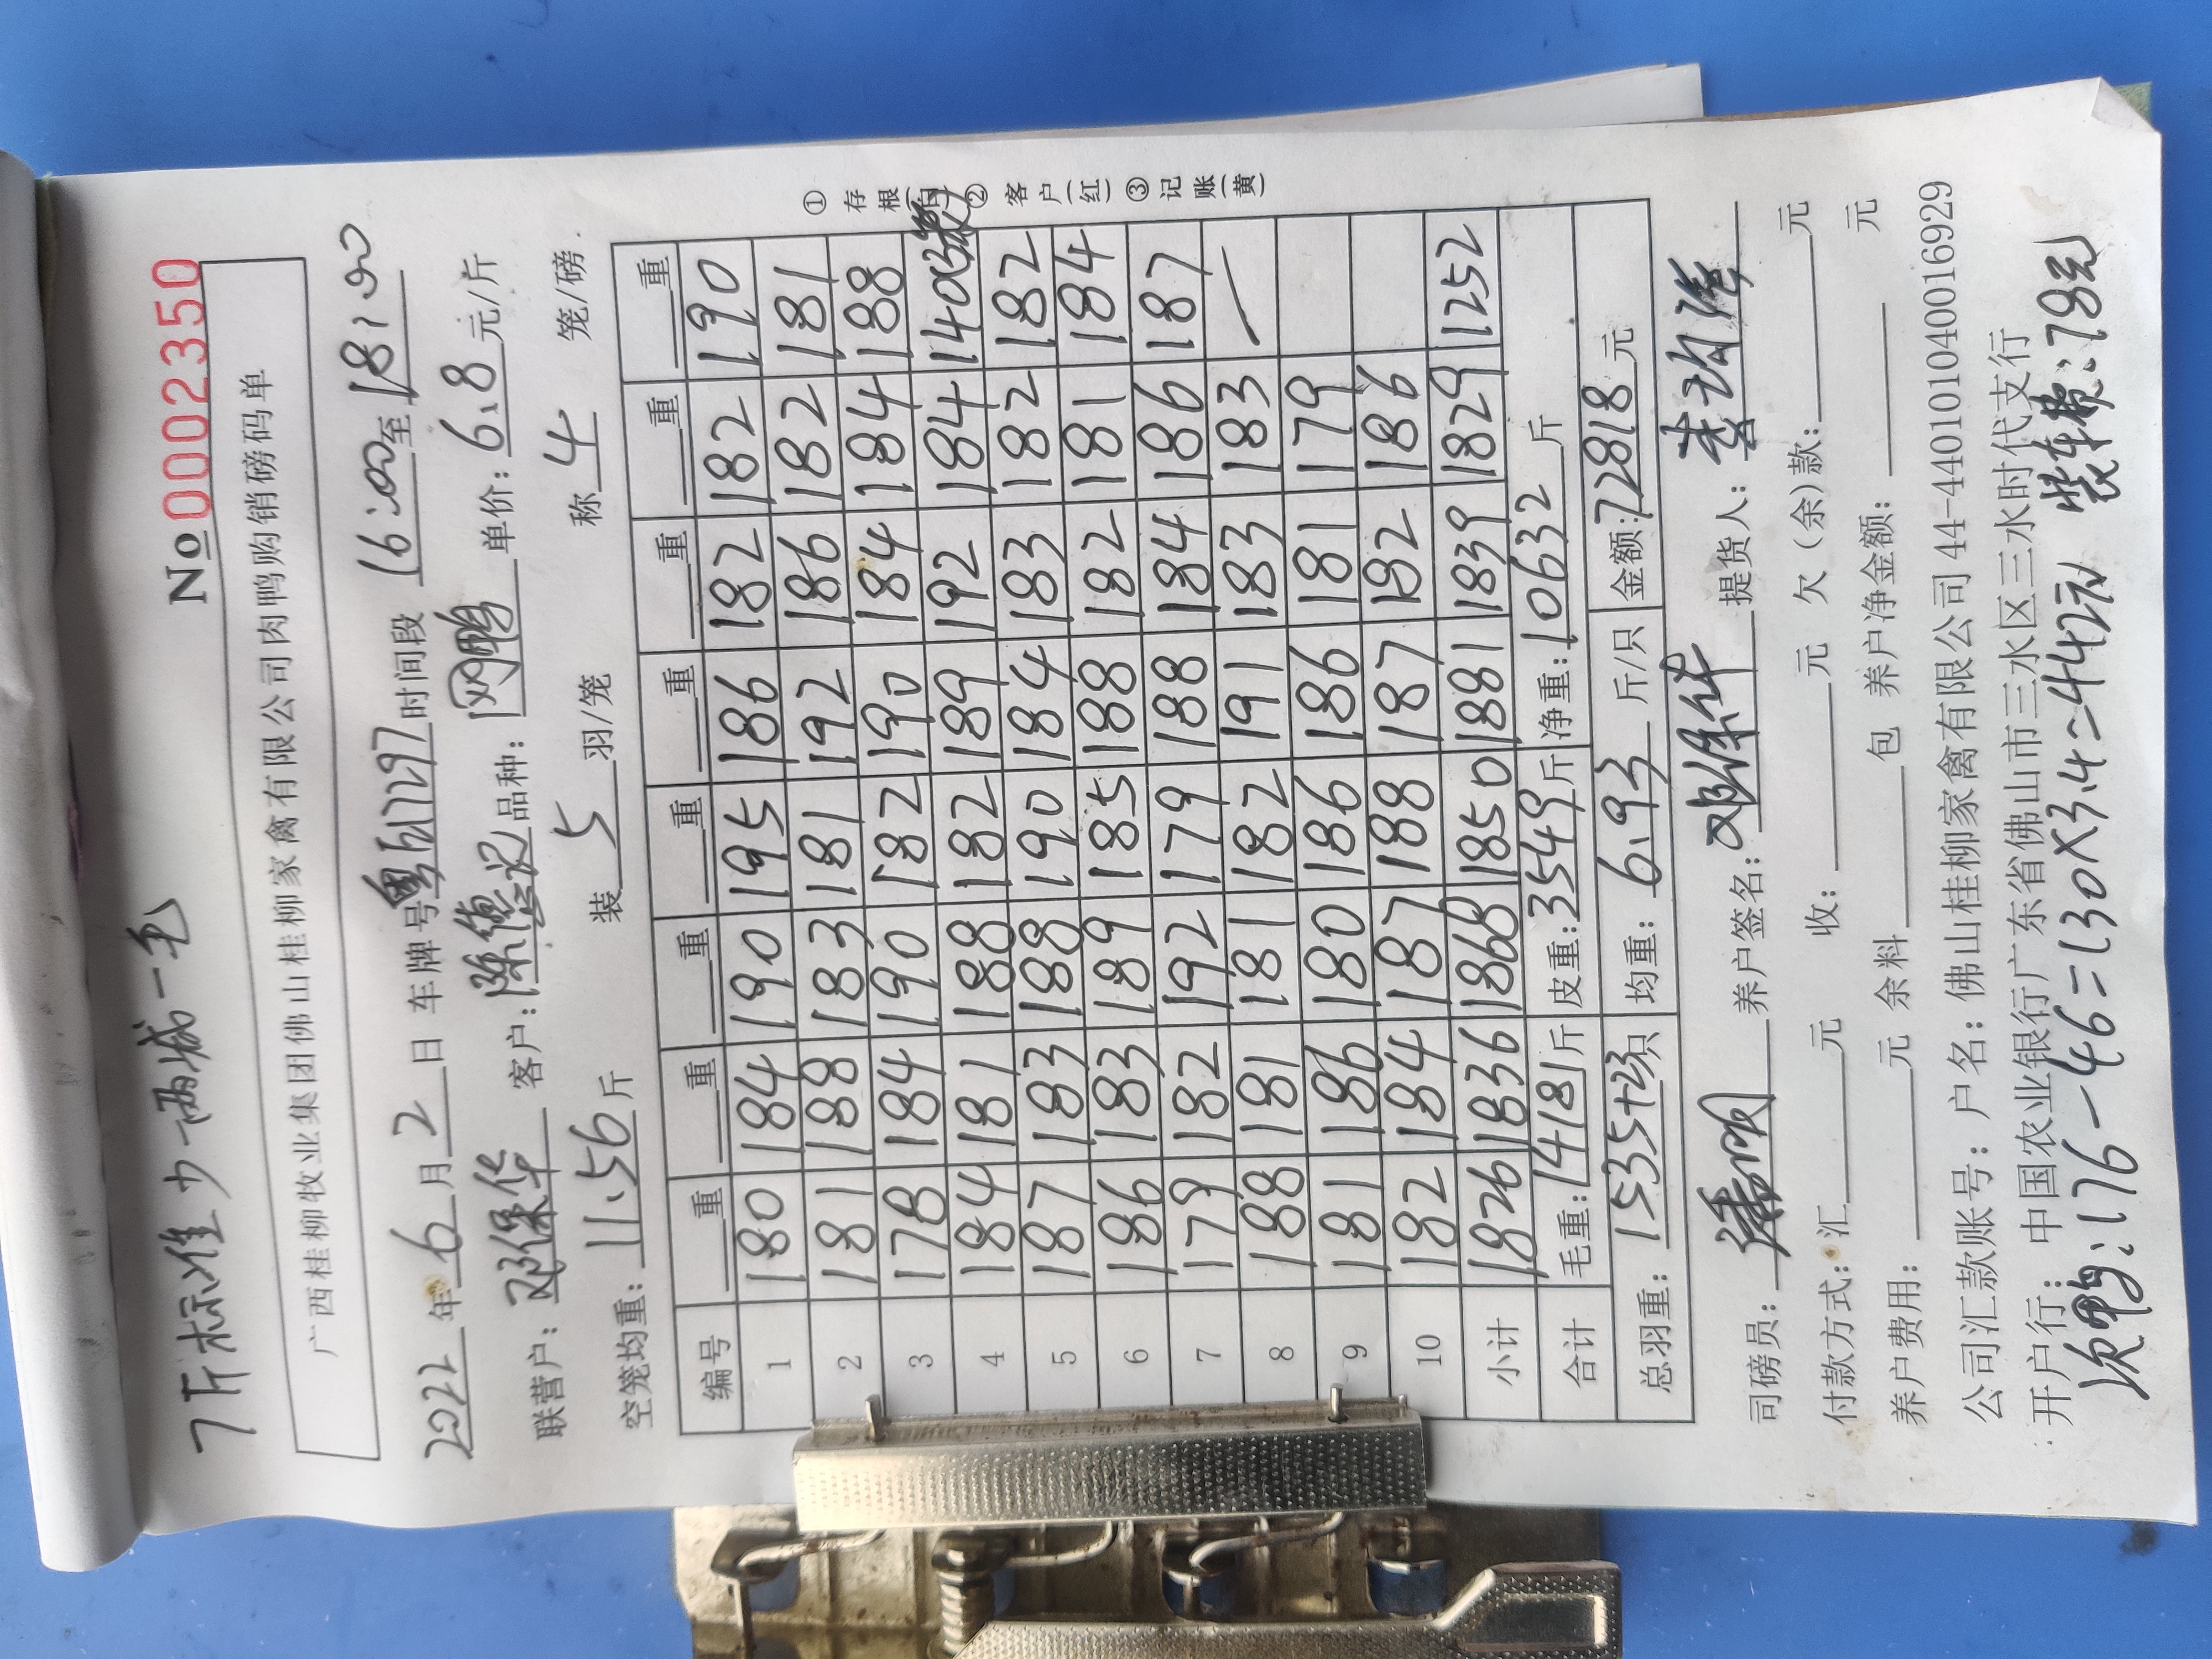 7斤标准少一两减一毛
No 0002350
广西桂柳牧业集团佛山桂柳家禽有限公司肉鸭购销磅码单
2022年6月2日 车牌号 时间段 16:00至18:00
联营户:邓保华 客户:陈德记 品种: 单价:6.8元/斤
空笼均重:11.56斤 装5羽/笼 称4笼/磅
编号 重 重 重 重 重 重 重 重
1 180 184 190 195 186 182 182 190
2 181 188 183 181 192 186 182 181
3 178 184 190 182 190 184 184 188
4 184 181 188 182 189 192 184 140
5 187 183 188 190 184 183 182 182
6 186 183 189 185 188 182 181 184
7 179 182 192 179 188 184 186 187
8 188 181 181 182 191 183 183
9 181 186 180 186 186 181 179
10 182 184 187 188 187 182 186
小计 1826 1836 1868 1850 1881 1839 1829 1252
合计 毛重:14181斤 皮重:3549斤 净重:10632斤
总羽重:1535只 均重:6.93斤/只 金额:72818元
① 存根(白) ② 客户(红) ③ 记账(黄)
司磅员: 养户签名:邓保华 提货人:
付款方式:汇 元 收: 元 欠(余)款: 元
养户费用: 元 余料 包 养户净金额: 元
公司汇款账号:户名:佛山桂柳家禽有限公司44-440101040016929
开户行:中国农业银行广东省佛山市三水区三水时代支行
次鸭:176-46=130×3.4=442元 装车费:78元